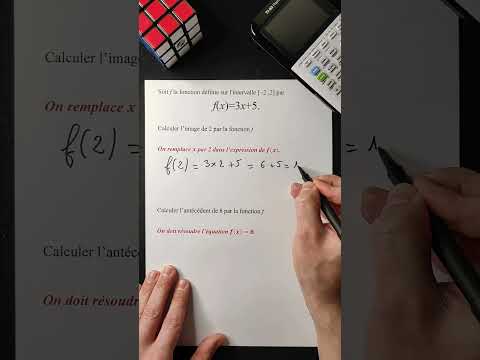 Soit f la fonction définie sur l'intervalle [-2 ,2] par
f(x)=3x+5.
Calculer l'image de 2 par la fonction f
On remplace x par 2 dans l'expression de f(x).
f(2) = 3×2+5 = 6+5=1
Calculer l'antécédent de 8 par la fonction f
On doit résoudre l'équation f(x) = 8.
Calculer l'image
On remplace x
f(2) =
Calculer l'antéc
On doit résoudre